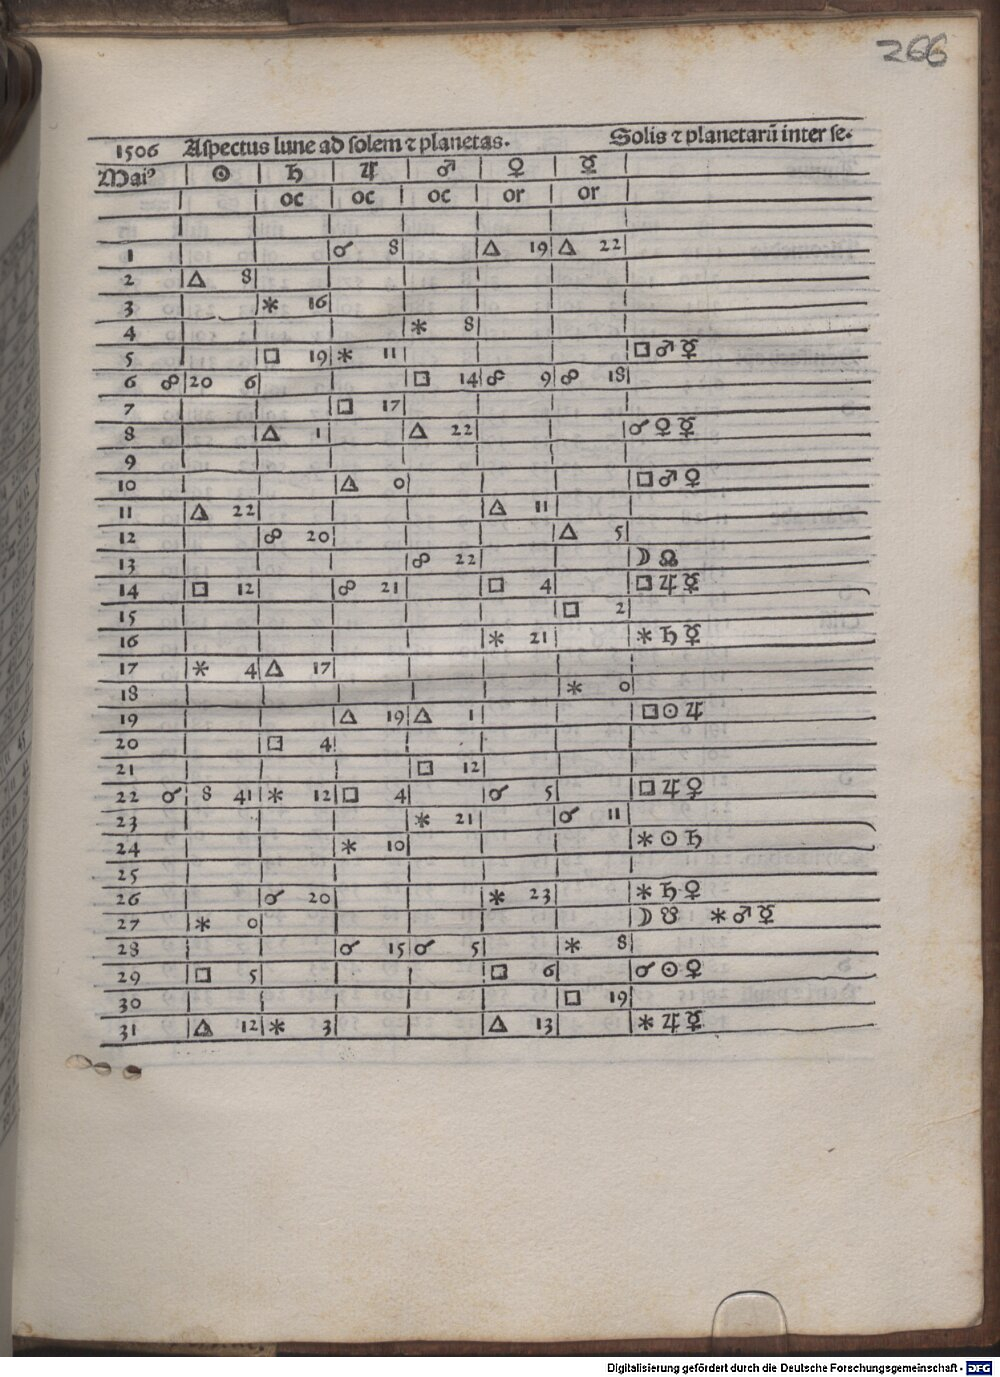 266
1506 Aſpectus lune ad ſolem ⁊ planetas. Solis ⁊ planetarũ inter ſe.
Maiꝰ ☉ ♄ ♃ ♂ ♀ ☿
oc oc oc or or
1 ☌ 8 △ 19 △ 22
2 △ 8
3 ⚹ 16
4 ⚹ 8
5 □ 19 ⚹ 11 □ ♂ ☿
6 ☍ 20 6 □ 14 ☍ 9 ☍ 18
7 □ 17
8 △ 1 △ 22 ☌ ♀ ☿
9
10 △ 0 □ ♂ ♀
11 △ 22 △ 11
12 ☍ 20 △ 5
13 ☍ 22 ☽ ☊
14 □ 12 ☍ 21 □ 4 □ ♃ ☿
15 □ 2
16 ⚹ 21 ⚹ ♄ ☿
17 ⚹ 4 △ 17
18 ⚹ 0
19 △ 19 △ 1 □ ☉ ♃
20 □ 4
21 □ 12
22 ☌ 8 41 ⚹ 12 □ 4 ☌ 5 □ ♃ ♀
23 ⚹ 21 ☌ 11
24 ⚹ 10 ⚹ ☉ ♄
25
26 ☌ 20 ⚹ 23 ⚹ ♄ ♀
27 ⚹ 0 ☽ ☋ ⚹ ♂ ☿
28 ☌ 15 ☌ 5 ⚹ 8
29 □ 5 □ 6 ☌ ☉ ♀
30 □ 19
31 △ 12 ⚹ 3 △ 13 ⚹ ♃ ☿
Digitalisierung gefördert durch die Deutsche Forschungsgemeinschaft - DFG